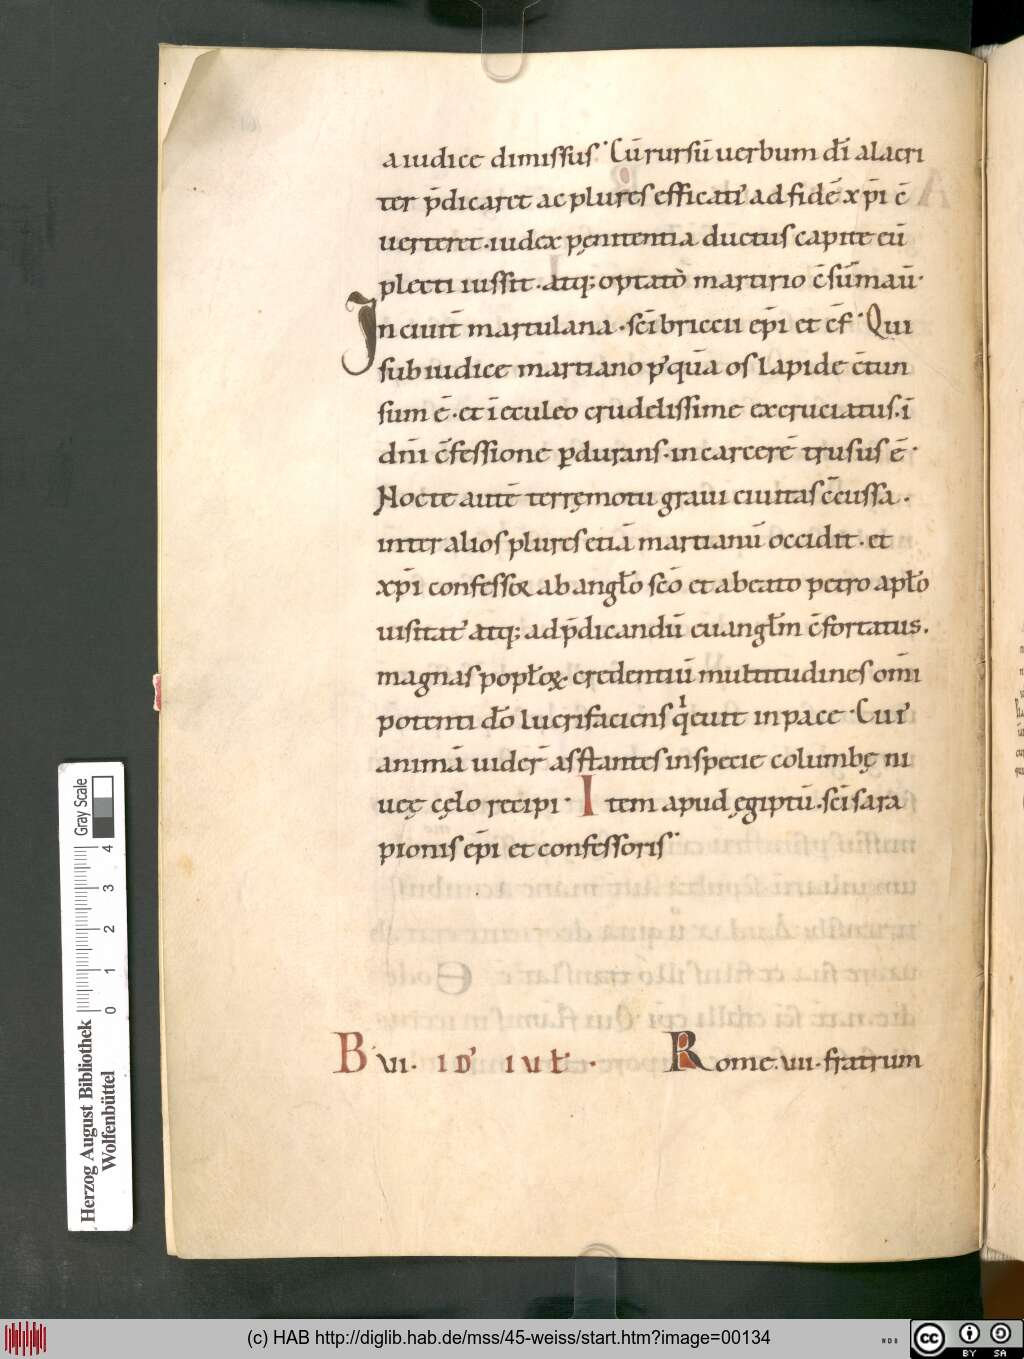 a iudice dimissus· Cū rursū uerbum dn̄i alacri
ter p̄dicaret ac plures efficat' ad fidē xp̄i c̄
uerteret· iudex pęnitentia ductus capite eū
plecti iussit· atq; optato martirio c̄sūmauit·
In ciuit̄ martulana· sc̄i briccii ep̄i et c̄f· Qui
sub iudice martiano p'quā os lapide c̄tun
sum ē· et ī eculeo crudelissime excruciatus· ī
dn̄i c̄fessione ꝑdurans· in carcerē trusus ē·
Nocte autē terręmotu graui ciuitas c̄cussa·
inter alios plures etiā martianū occidit· et
xp̄i confessoꝝ ab angl̄o sc̄o et a beato petro apl̄o
uisitat' atq; ad p̄dicandū euangl̄m c̄fortatus·
magnas popl̄oꝝ credentiū multitudines om̄i
potenti dō lucrifaciens qͥeuit in pace· Cui'
animā uider̄ asstantes in specie columbę ni
ueę cęlo recipi· Item apud ęgiptū· sc̄i sara
pionis ep̄i et confessoris·
B VI· ID' IUL̄· Rome· uii· fratrum
Herzog August Bibliothek
Wolfenbüttel
0 1 2 3 4
Gray Scale
(c) HAB http://diglib.hab.de/mss/45-weiss/start.htm?image=00134
cc BY SA